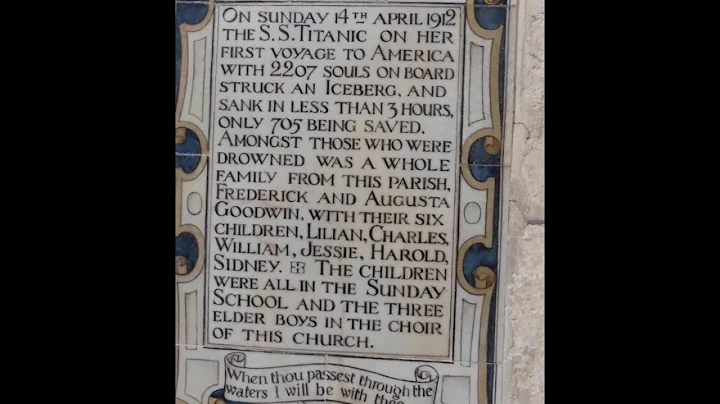 On Sunday 14th April 1912
the S.S. Titanic on her
first voyage to America
with 2207 souls on board
struck an Iceberg, and
sank in less than 3 hours,
only 705 being saved.
Amongst those who were
drowned was a whole
family from this parish,
Frederick and Augusta
Goodwin, with their six
children, Lilian, Charles,
William, Jessie, Harold,
Sidney. ✠ The children
were all in the Sunday
School and the three
elder boys in the choir
of this church.
When thou passest through the
waters I will be with thee